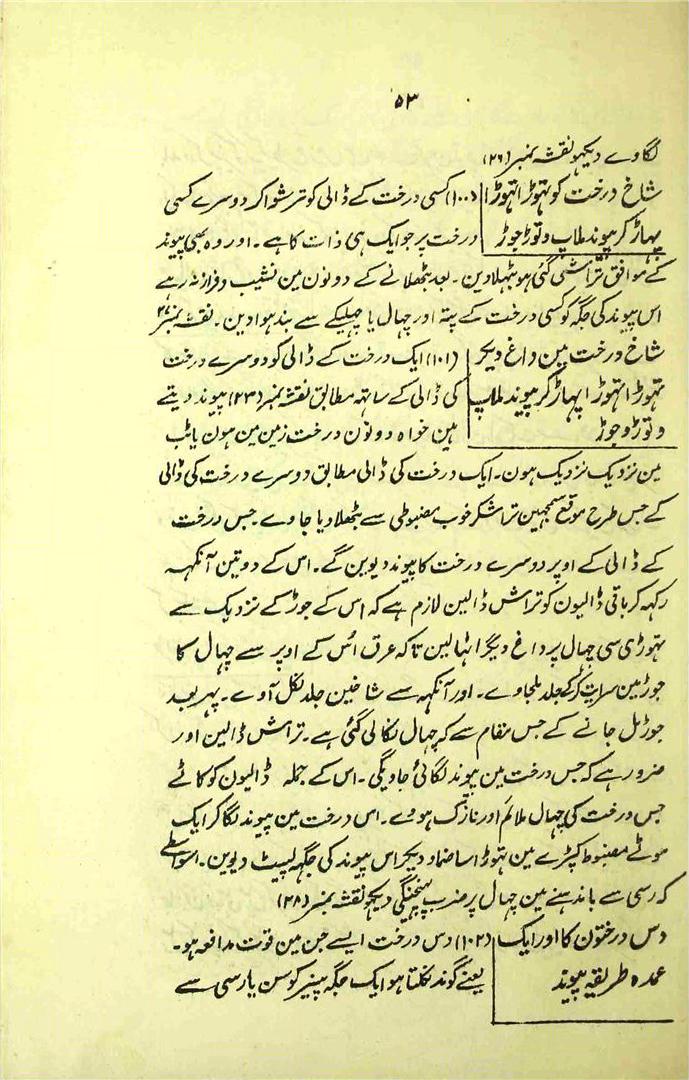 ۵۳
لگاوے دیکہو نقشہ نمبر (۲۶)
شاخ درخت کو تہوڑا تہوڑا (۱۰۰) کسی درخت کے ڈالی کو ترشوا کر دوسرے کسی
پہاڑ کر پیوند ملاپ و توڑ جوڑ درخت پر جو ایک ہی ذات کا ہے۔ اور وہ بھی پیوند
کے موافق تراشی گئی ہو بٹھلا دین۔ بعد بٹھلانے کے دونون مین نشیب و فراز نہ رہے
اس پیوند کی جگہ کو کسی درخت کے پتہ اور چہال یا چہلیکے سے بندہوا دین۔ نقشہ نمبر ۲۷
شاخ درخت مین داغ دیکر (۱۰۱) ایک درخت کے ڈالی کو دوسرے درخت
تہوڑا تہوڑا پہاڑ کر پیوند ملاپ کی ڈالی کے ساتہہ مطابق نقشہ نمبر (۲۳) پیوند دیتے
و توڑ و جوڑ ہین خواہ دونون درخت زمین مین ہون یا ٹب
مین نزدیک نزدیک ہون۔ ایک درخت کی ڈالی مطابق دوسرے درخت کی ڈالی
کے جس طرح موقع سمجہین تراشکر خوب مضبوطی سے بٹھلا دیا جاوے۔ جس درخت
کے ڈالی کے اوپر دوسرے درخت کا پیوند دیوین گے۔ اس کے دو تین آنکہہ
رکہہ کر باقی ڈالیون کو تراش ڈالین لازم ہے کہ اس کے جوڑ کے نزدیک سے
تہوڑی سی چہال پر داغ دیگر اٹہالین تاکہ عرق اُس کے اوپر سے چہال کا
جوڑ مین سرایت کرکے جلد ملجاوے۔ اور آنکہہ سے شاخین جلد نکل آوے۔ پہر بعد
جوڑ مل جانے کے جس مقام سے کہ چہال نکالی گئی ہے۔ تراش ڈالین اور
ضرور ہے کہ جس درخت مین پیوند لگائی جاویگی۔ اس کے جملہ ڈالیون کو کاٹے
جس درخت کی چہال ملائم اور نازک ہووے۔ اس درخت مین پیوند لگا کر ایک
موٹے مضبوط کپڑے مین تہوڑا سا ضماد دیکر اس پیوند کی جگہہ لپیٹ دیوین۔ اسواسطے
کہ رسی سے باندہنے مین چہال پر ضرب پہنچیگی دیکہو نقشہ نمبر (۲۸)
دس درختون کا اور ایک (۱۰۲) دس درخت ایسے جن مین قوت مدافعہ ہو۔
عمدہ طریقہ پیوند یعنے گوند نکلتا ہو ایک جگہ پینیر کو سن یا رسی سے